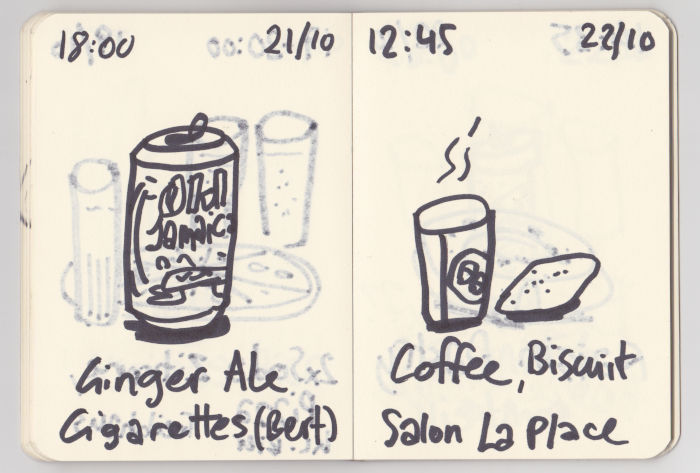 18:00 21/10
Old
Jamaica
Ginger Ale
Cigarettes (Bert)
12:45 22/10
Coffee, Biscuit
Salon La Place